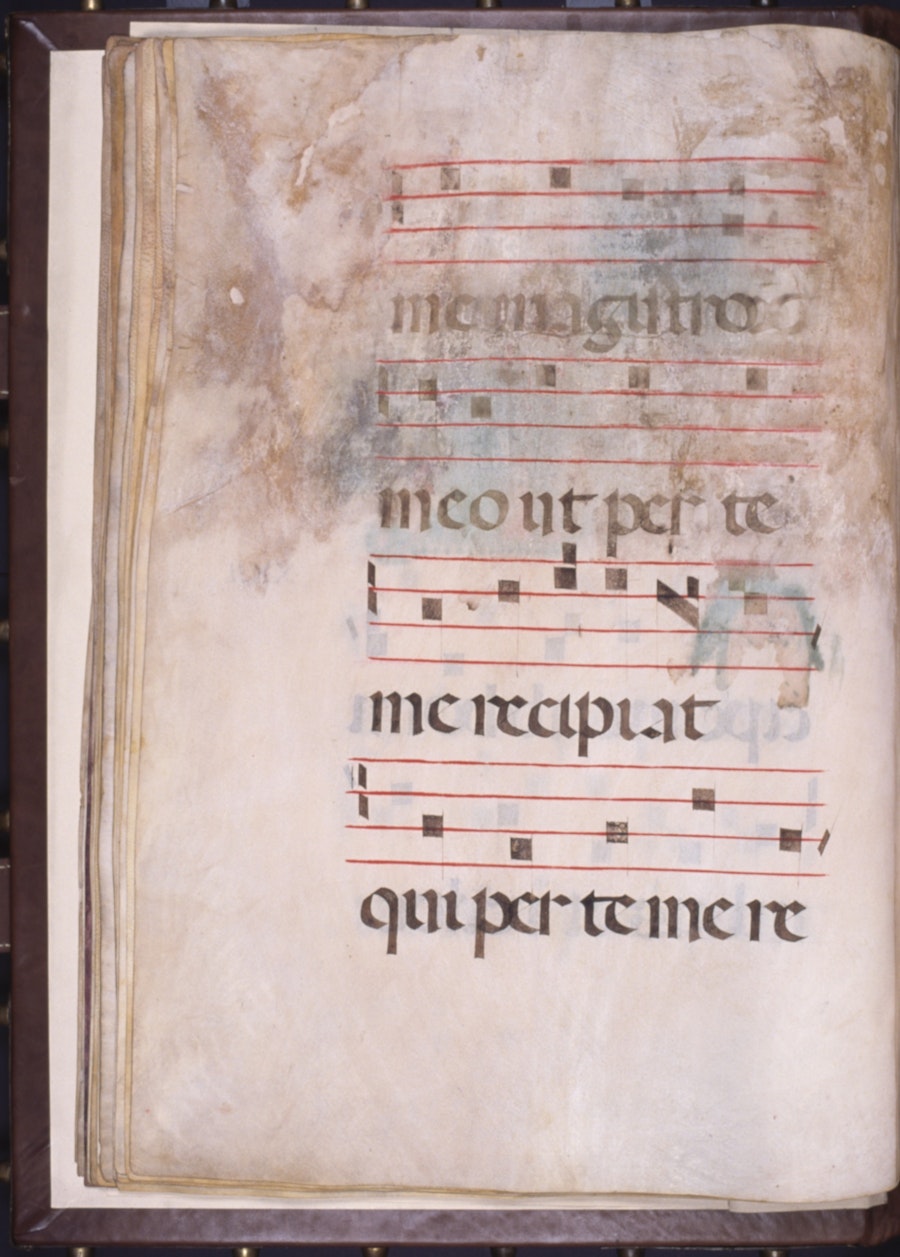 me magistro
meo ut per te
me recipiat
qui per te me re